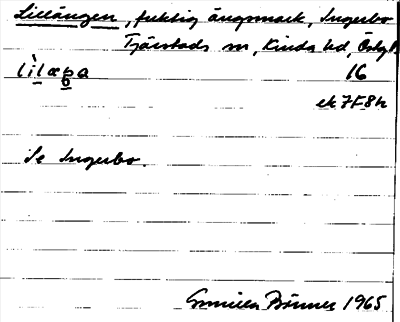 Lillängen, fuktig ängsmark, Ingerbo
Tjärstads sn, Kinda hd, Östgl.
16
ek 7F8h
Se Ingerbo.
Gunilla Brönner 1965